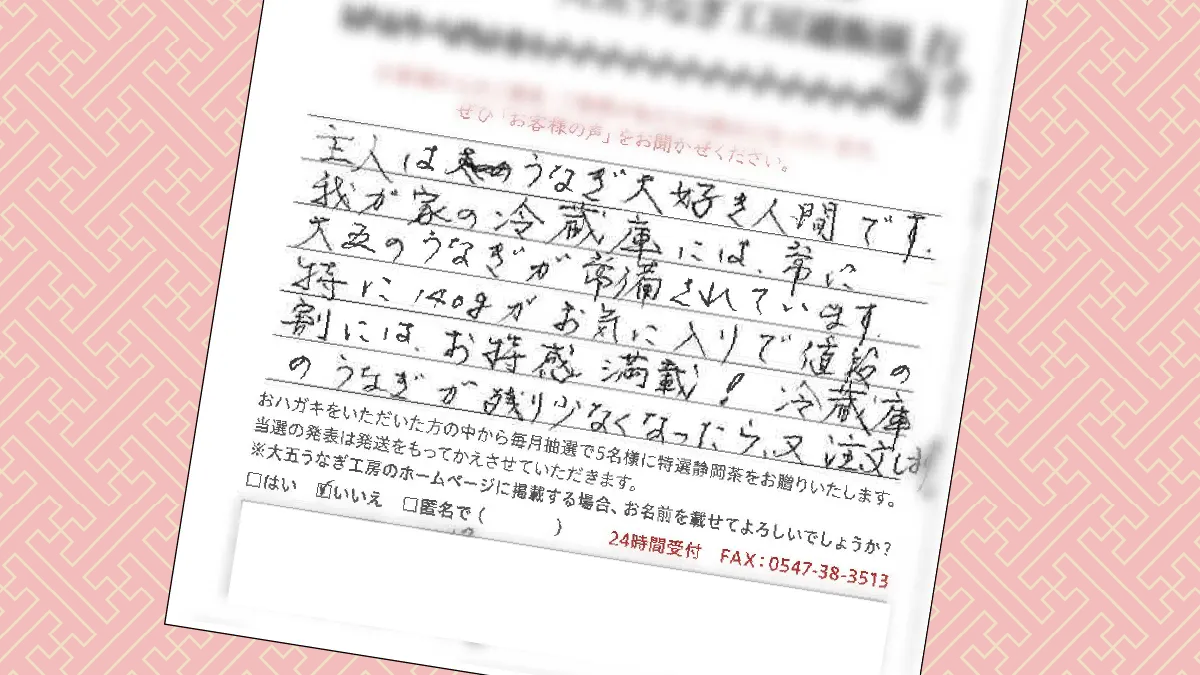 ぜひ「お客様の声」をお聞かせください。
主人はうなぎ大好き人間です.
我が家の冷蔵庫には、常に
大五のうなぎが常備されています.
特に140gがお気に入りで値段の
割には、お特感満載! 冷蔵庫
のうなぎが残り少なくなったら、又注文し
おハガキをいただいた方の中から毎月抽選で5名様に特選静岡茶をお贈りいたします。
当選の発表は発送をもってかえさせていただきます。
※大五うなぎ工房のホームページに掲載する場合、お名前を載せてよろしいでしょうか?
□はい ☑いいえ □匿名で( )
24時間受付 FAX:0547-38-3513